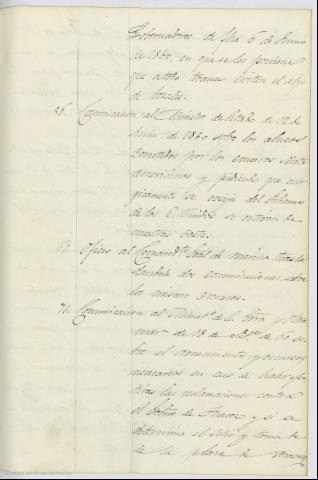 Gobernadores de fha 6 de Junio
de 1860, en que se les previene
que a todo trance eviten el
de
56. Comunicacion al Ministro de Estado de 12 de
Junio de 1860 sobre los abusos
cometidos por los cruceros Norte
americanos y pidiendo que
gicamente se exija del Gobierno
de los E. Unidos se retiren de
nuestras costas.
61. Oficio al Comand.te Gral de marina trasla
dandole dos comunicaciones sobre
los mismos cruceros.
71. Comunicacion al Minist.o de la Grra y Ultra
mar de 18 de de 60 so
bre el armamento y recursos
necesarios en caso de hacer efec
tivas las reclamaciones contra
el Gobno de Juarez y si se
determina el sitio y toma de
de la plaza de Veracruz